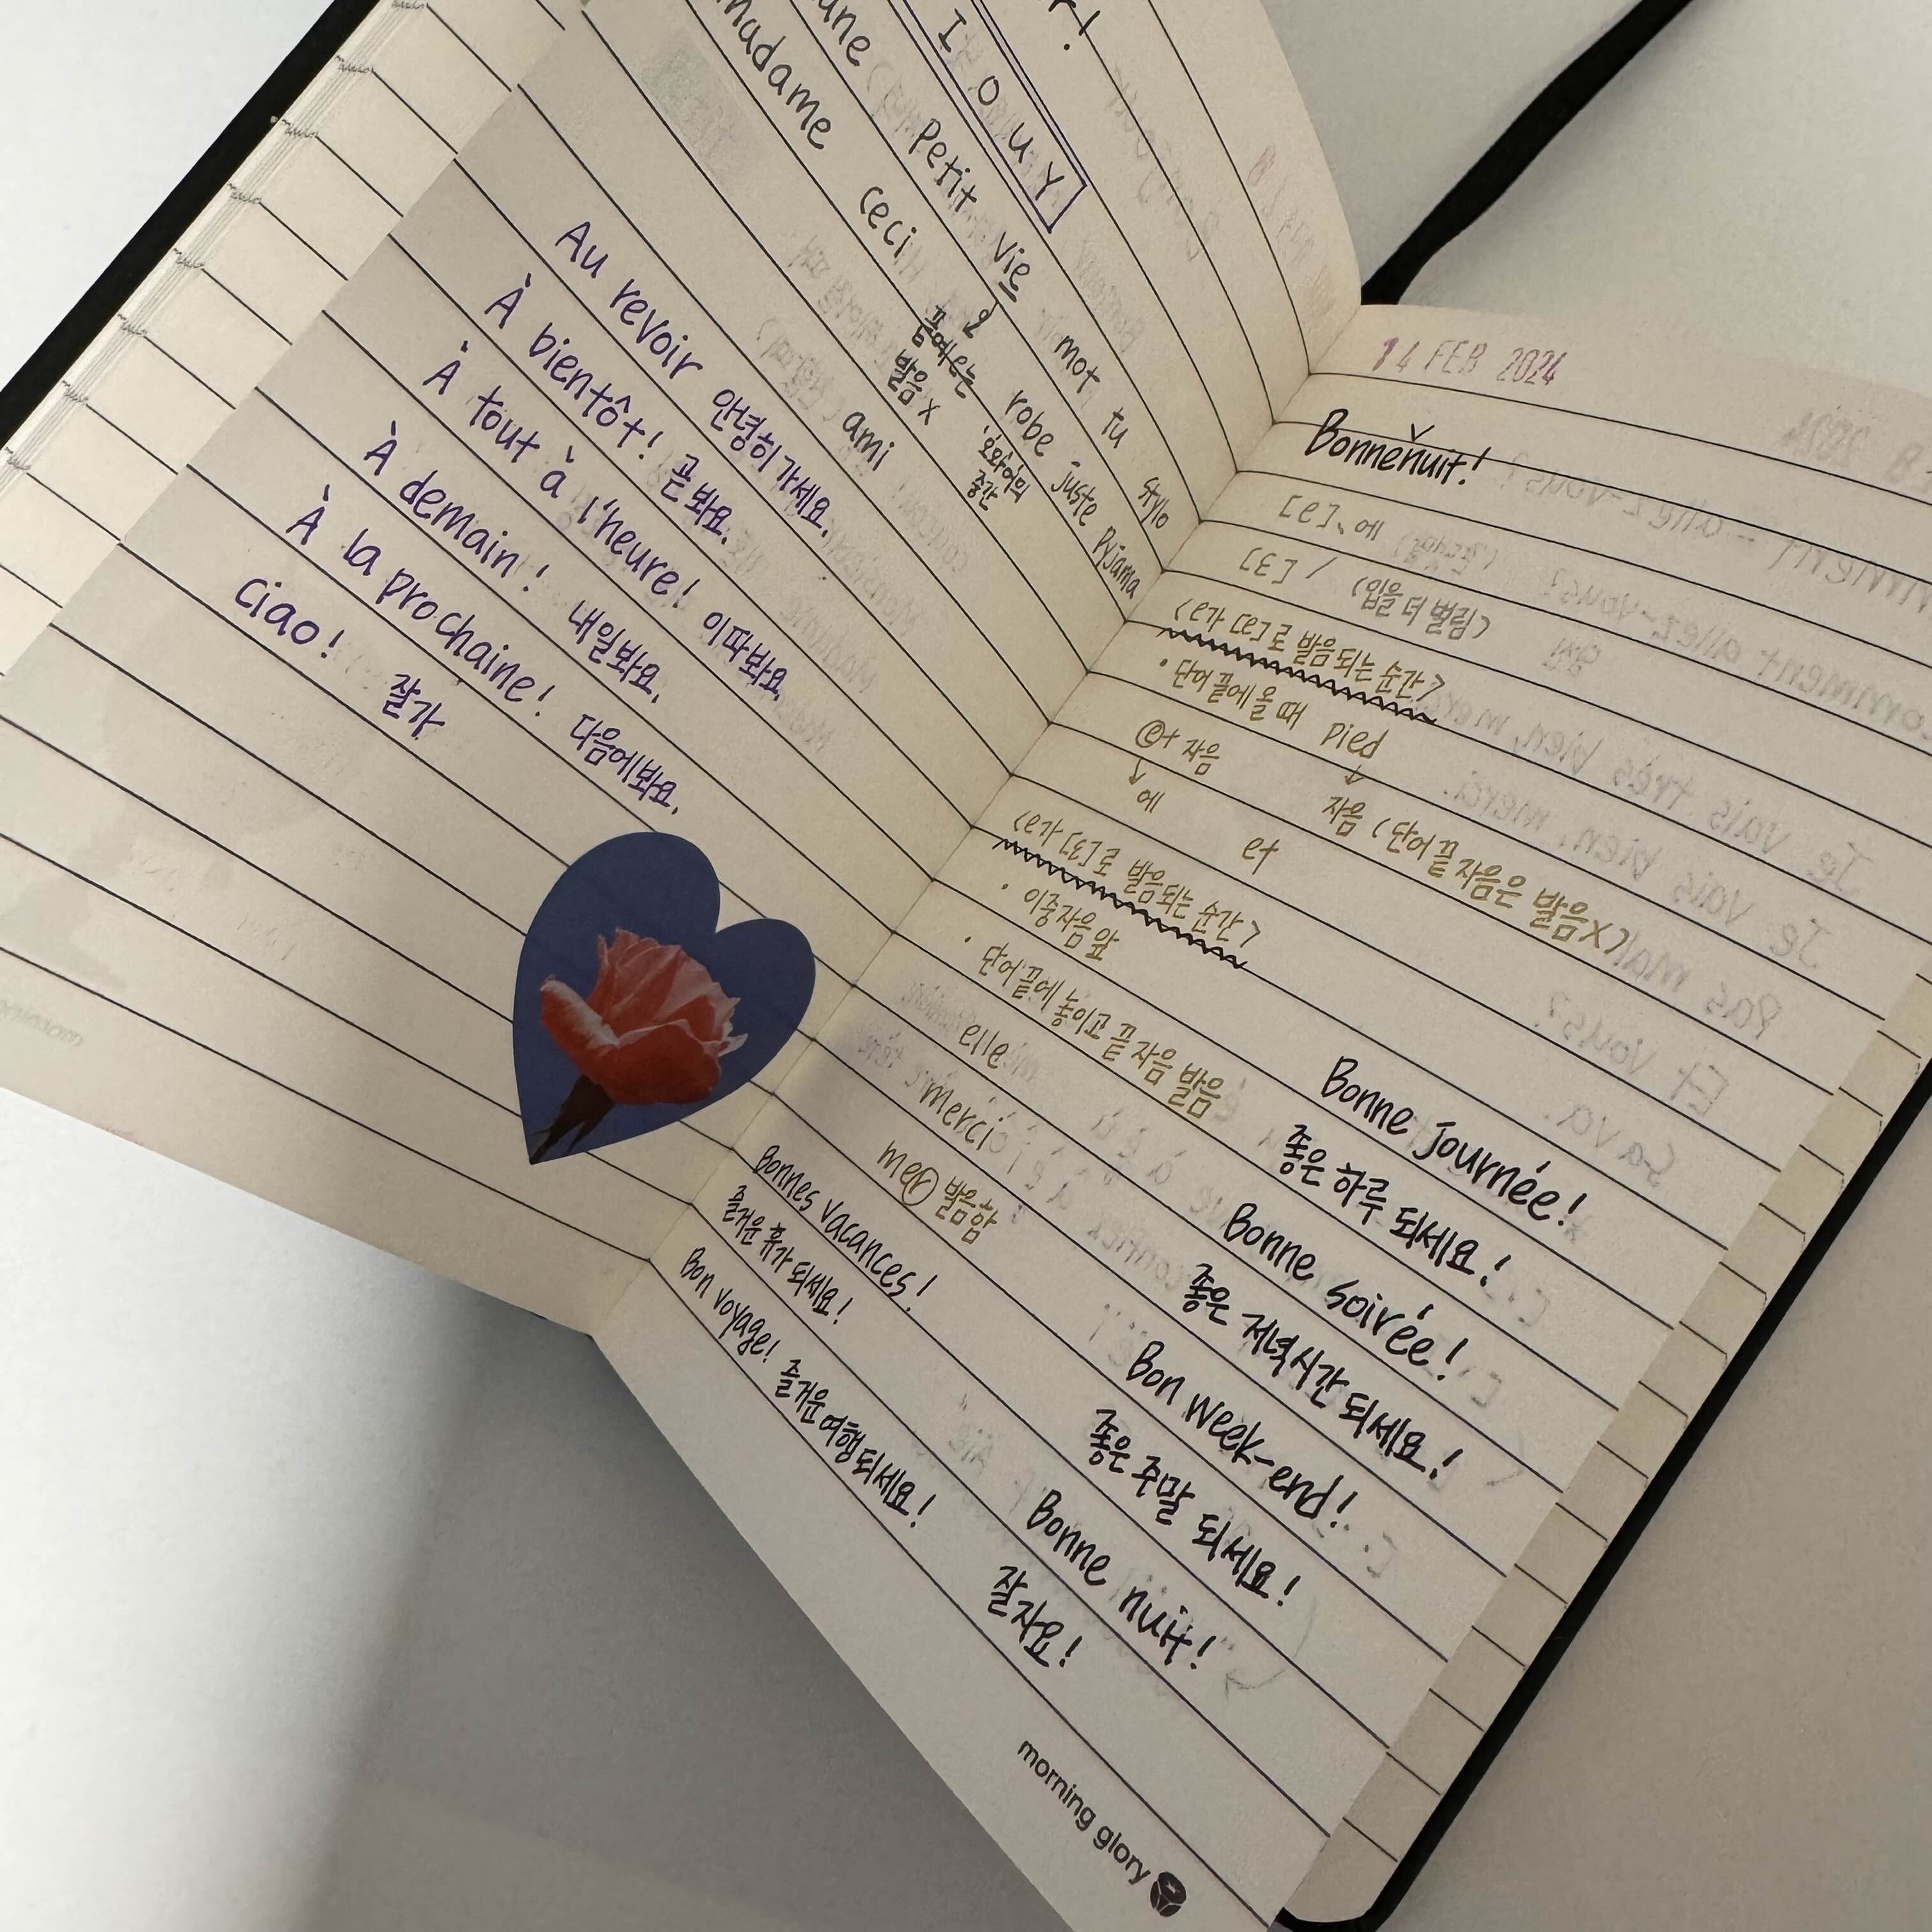 I O U Y
une petit vie mot tu stylo
madame ceci robe juste pyjama
끝에는
발음 X
ami
Au revoir 안녕히가세요.
À bientôt! 곧 봐요.
À tout à l'heure! 이따봐요.
À demain! 내일봐요.
À la prochaine! 다음에봐요.
Ciao! 잘가
14 FEB 2024
Bonne nuit!
[e], 에
[ɛ] / (입을 더 벌림)
<e가 [e]로 발음되는 순간>
• 단어 끝에 올 때 pied
e + 자음
↓ ↓
에 자음 (단어 끝 자음은 발음X)
et
<e가 [ɛ]로 발음되는 순간>
• 이중자음 앞
• 단어 끝에 놓이고 끝 자음 발음
elle
merci
mer 발음함
Bonnes vacances!
즐거운 휴가 되세요!
Bon voyage! 즐거운 여행 되세요!
Bonne journée!
좋은 하루 되세요!
Bonne soirée!
좋은 저녁시간 되세요!
Bon week-end!
좋은 주말 되세요!
Bonne nuit!
잘자요!
morning glory